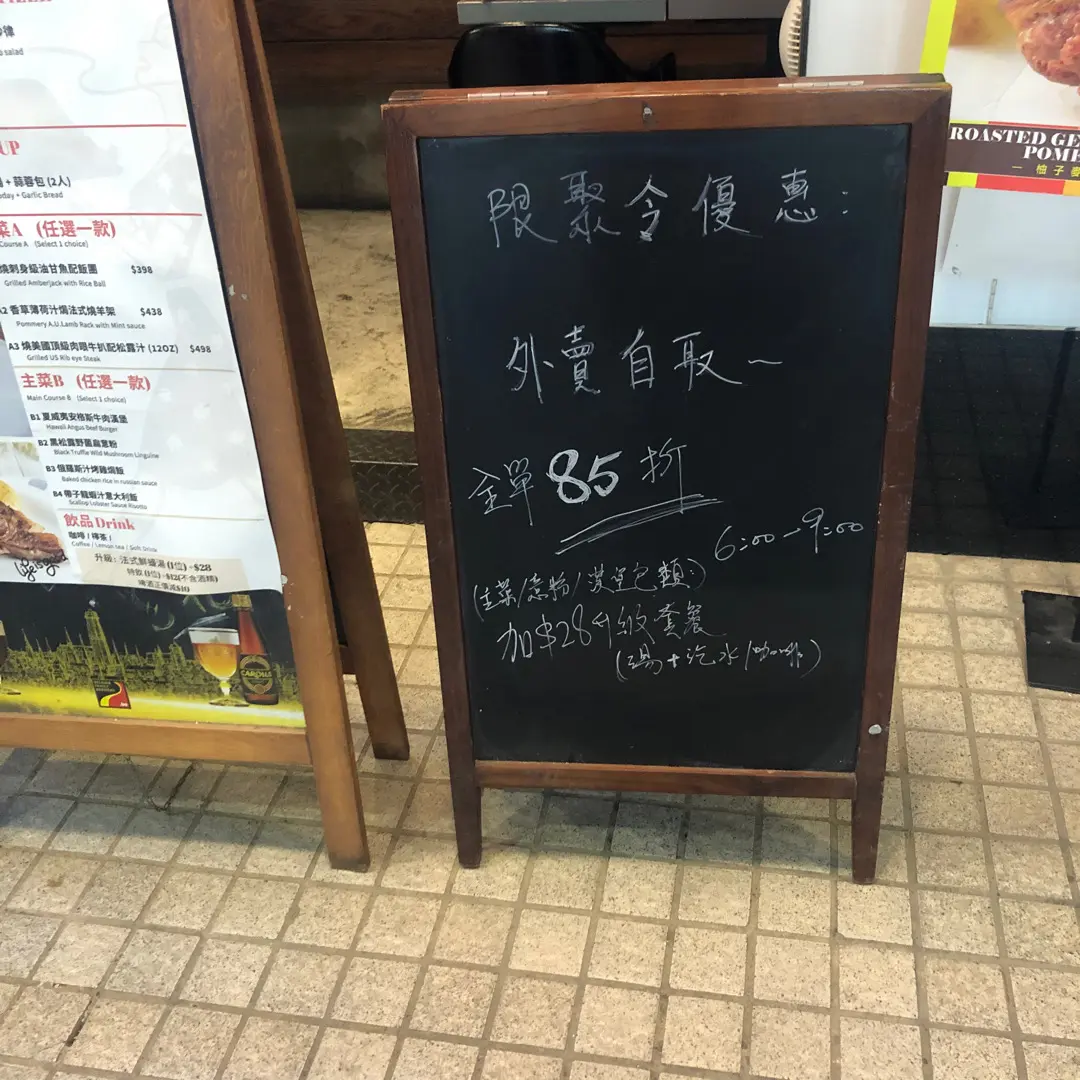 律
salad
UP
+ 蒜蓉包 (2人)
day + Garlic Bread
菜A (任選一款)
Course A (Select 1 choice)
燒刺身級油甘魚配飯團 $398
Grilled Amberjack with Rice Ball
A2 香草薄荷汁焗法式燒羊架 $438
Pommery A.U.Lamb Rack with Mint sauce
A3 燒美國頂級肉眼牛扒配松露汁 (12OZ) $498
Grilled US Rib eye Steak
主菜B (任選一款)
Main Course B (Select 1 choice)
B1 夏威夷安格斯牛肉漢堡
Hawaii Angus Beef Burger
B2 黑松露野菌扁意粉
Black Truffle Wild Mushroom Linguine
B3 俄羅斯汁烤雞焗飯
Baked chicken rice in russian sauce
B4 帶子龍蝦汁意大利飯
Scallop Lobster Sauce Risotto
飲品 Drink
咖啡 / 檸茶 /
Coffee / Lemon tea / Soft Drink
升級：法式鮮蠔湯 (1位) +$28
特飲 (1位) +$12(不含酒精)
啤酒正價減$10
限聚令優惠:
外賣自取~
全單85折
6:00-9:00
(主菜/意粉/漢堡包類:)
加$28升級套餐
(湯+汽水/咖啡)
ROASTED GE
POME
一 柚子